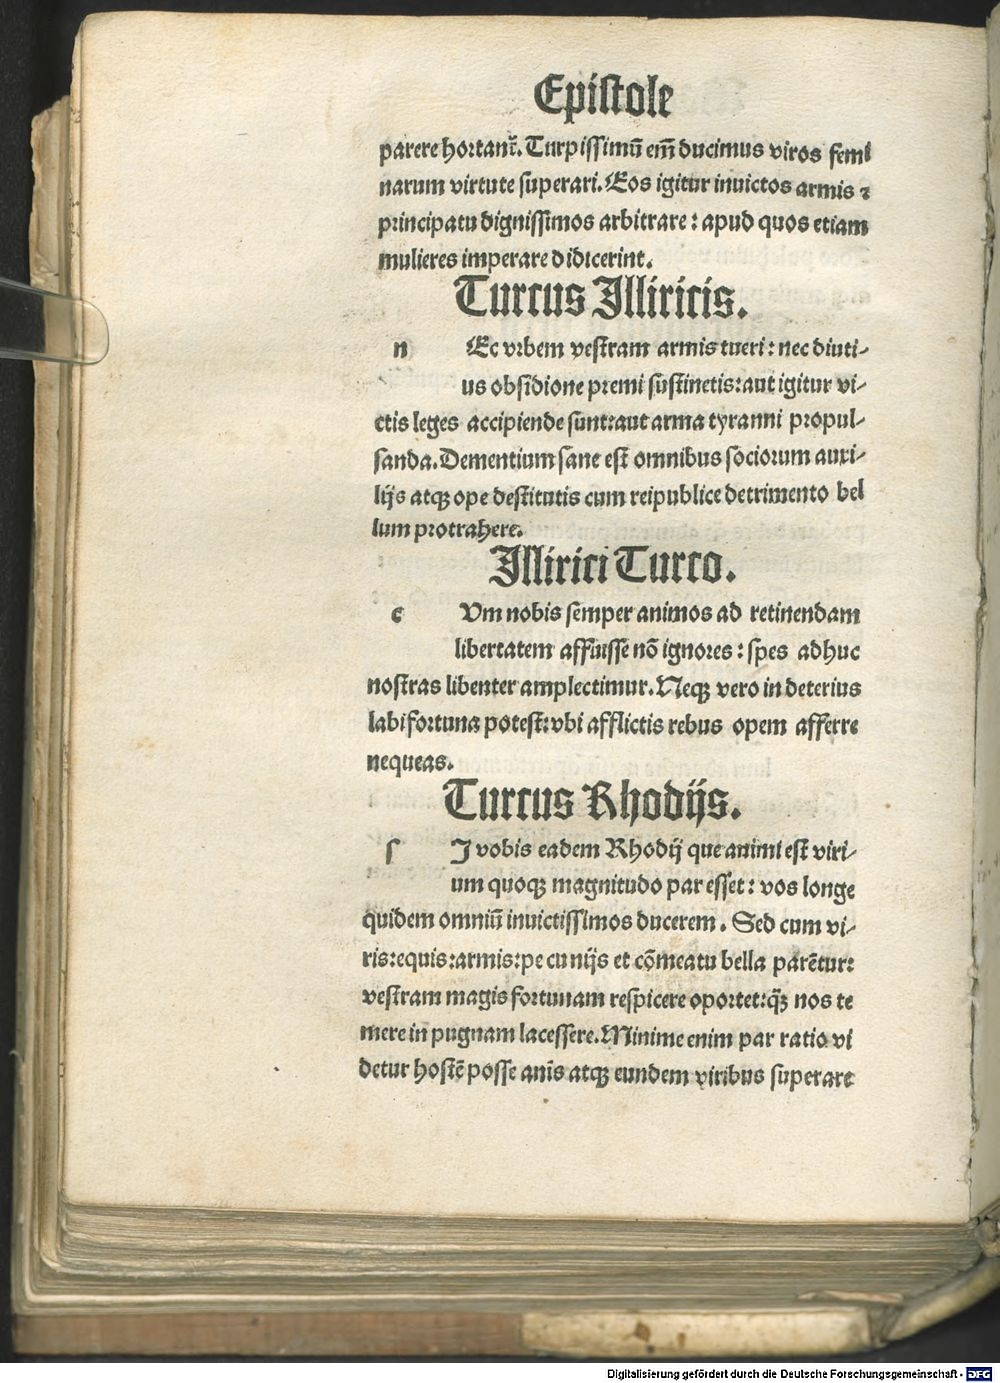 Epistole
parere hortant᷑. Turpissimū em̄ ducimus viros femi
narum virtute superari. Eos igitur inuictos armis ⁊
principatu dignissimos arbitrare: apud quos etiam
mulieres imperare didicerint.
Turcus Illiricis.
n Ec vrbem vestram armis tueri: nec diuti-
us obsidione premi sustinetis: aut igitur vi-
ctis leges accipiende sunt: aut arma tyranni propul-
sanda. Dementium sane est omnibus sociorum auxi-
lijs atqꝫ ope destitutis cum reipublice detrimento bel
lum protrahere.
Illirici Turco.
c Um nobis semper animos ad retinendam
libertatem affuisse nō ignores: spes adhuc
nostras libenter amplectimur. Neqꝫ vero in deterius
labi fortuna potest: vbi afflictis rebus opem afferre
nequeas.
Turcus Rhodijs.
s I vobis eadem Rhodij que animi est viri-
um quoqꝫ magnitudo par esset: vos longe
quidem omniū inuictissimos ducerem. Sed cum vi-
ris: equis: armis: pecunijs et cōmeatu bella parētur:
vestram magis fortunam respicere oportet: qꝫ̄ nos te
mere in pugnam lacessere. Minime enim par ratio vi
detur hostē posse anīs atqꝫ eundem viribus superare
Digitalisierung gefördert durch die Deutsche Forschungsgemeinschaft - DFG